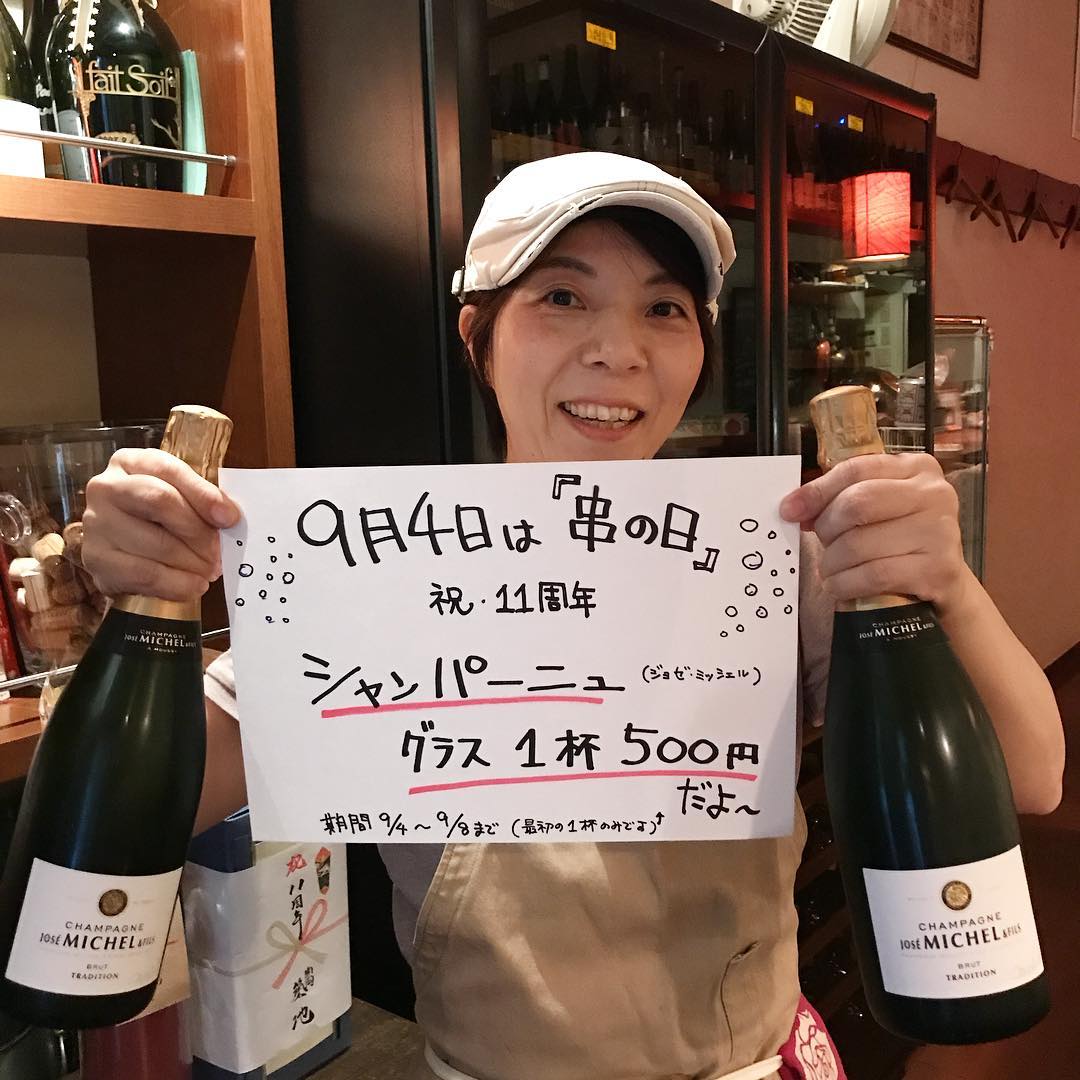 fait Soif
9月4日は『串の日』
祝・11周年
シャンパーニュ (ジョゼ・ミッシェル)
グラス 1杯 500円
だよ〜
期間 9/4〜9/8まで (最初の1杯のみです)↑
CHAMPAGNE
JOSÉ MICHEL & FILS
CHAMPAGNE
JOSÉ MICHEL & FILS
BRUT
TRADITION
CHAMPAGNE
JOSÉ MICHEL & FILS
BRUT
TRADITION
祝
11周年